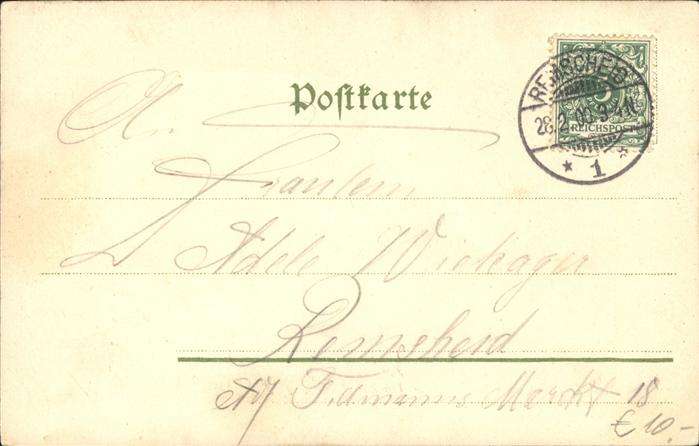 Postkarte
REMSCHEID
28.2.00.3-4N.
REICHSPOST
1
An
Fräulein
Adele Wiehager
Remscheid
Markt 18
€10,-